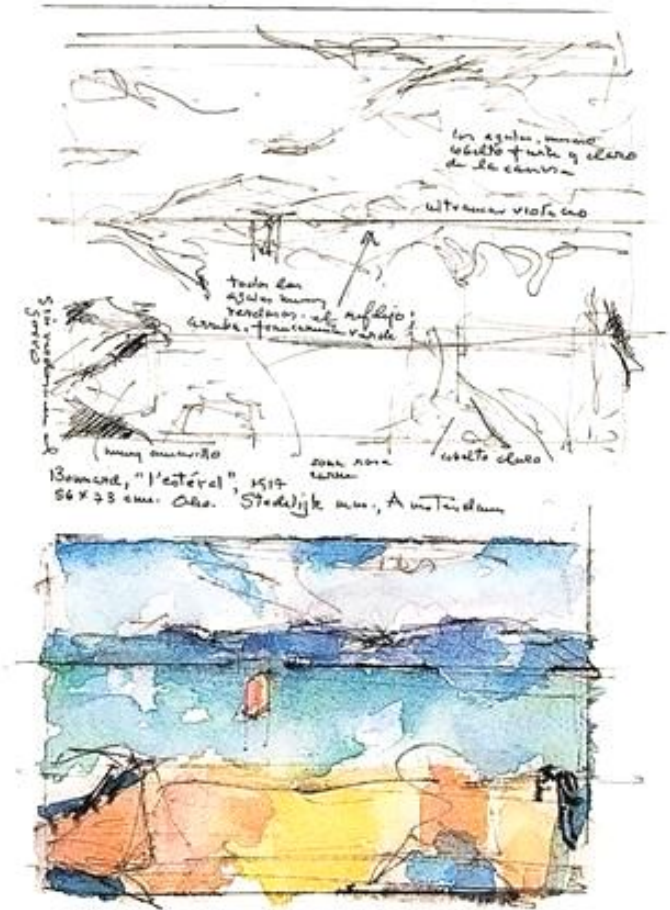 los azules, mismo
cobalto fuerte y claro
de la camisa
ultramar violaceo
todos los
azules muy
verdosos. el reflejo,
arriba, francamente verde
muy amarillo
zona rosa
carne
cobalto claro
Bonnard, "l'estérel", 1917
56 x 73 cms. Oleo. Stedelijk mus., Amsterdam